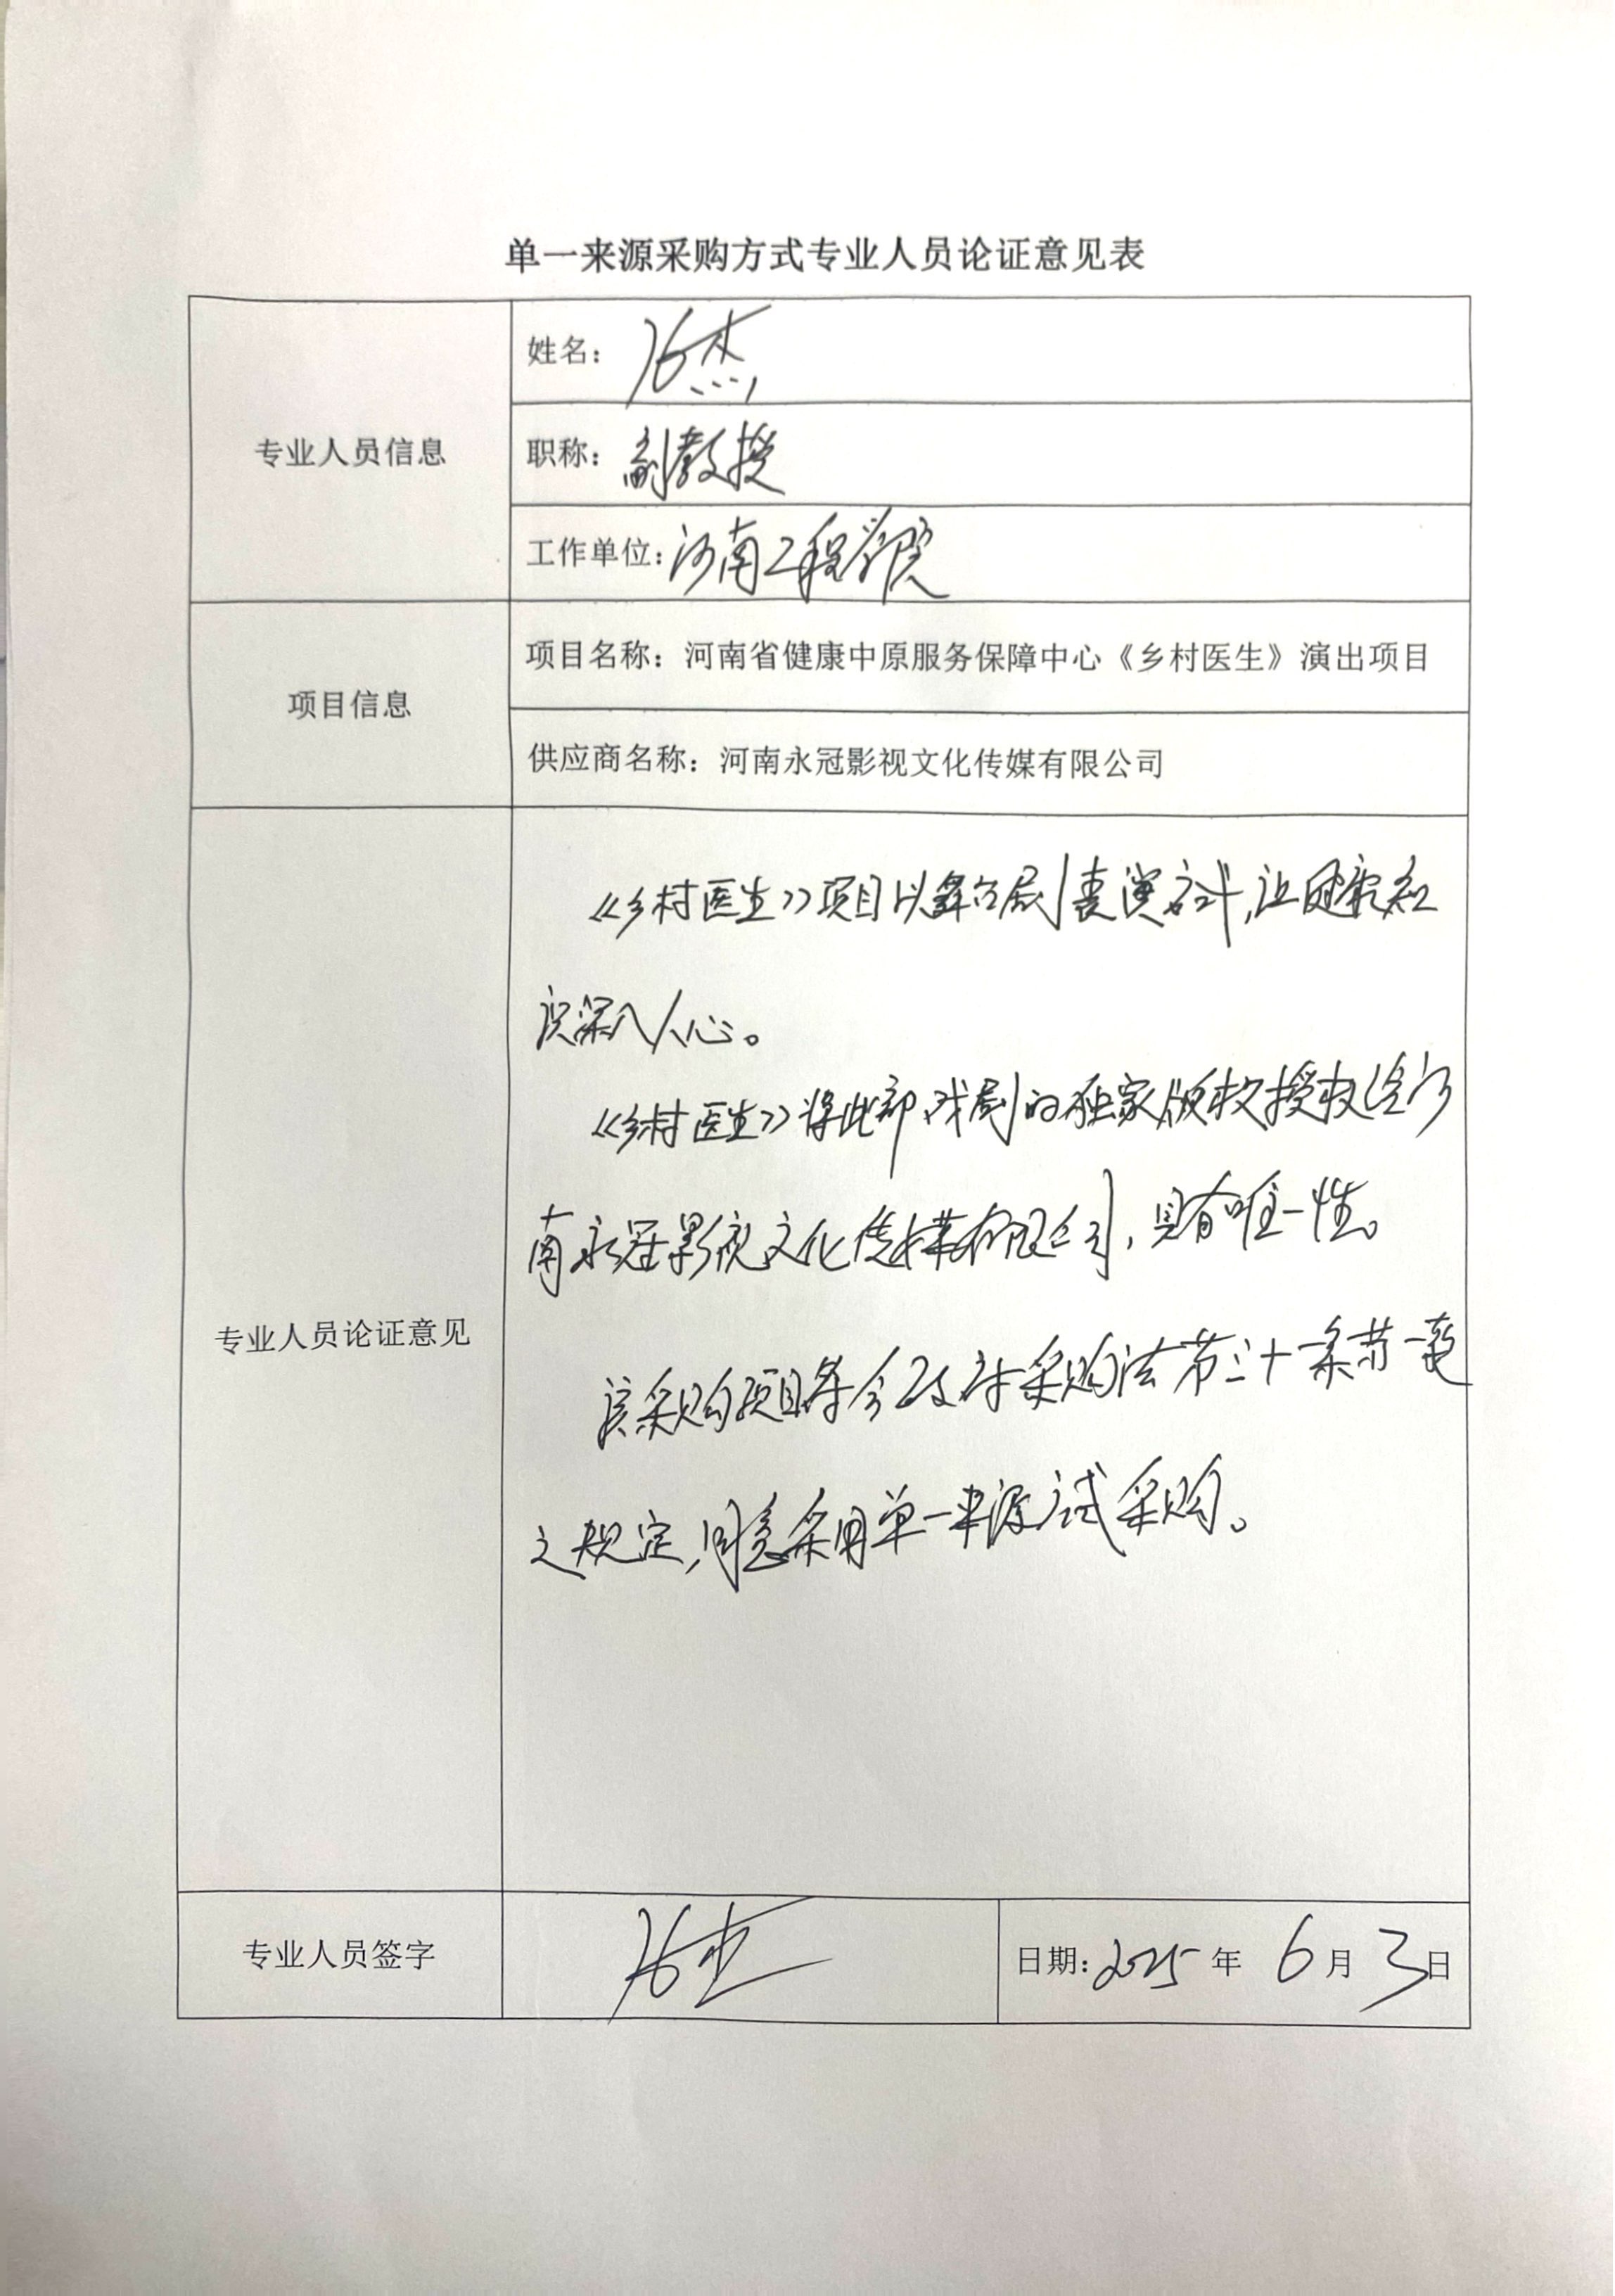 单一来源采购方式专业人员论证意见表
专业人员信息
姓名：杰
职称：副教授
工作单位：河南工程学院
项目信息
项目名称：河南省健康中原服务保障中心《乡村医生》演出项目
供应商名称：河南永冠影视文化传媒有限公司
专业人员论证意见
《乡村医生》项目以舞台剧表演方式，让健康知
识深入人心。
《乡村医生》将此部戏剧的独家版权授权给河
南永冠影视文化传媒有限公司，具有唯一性。
该采购项目符合政府采购法第三十一条第一款
之规定，同意采用单一来源方式采购。
专业人员签字
杰
日期：2025年 6月 3日